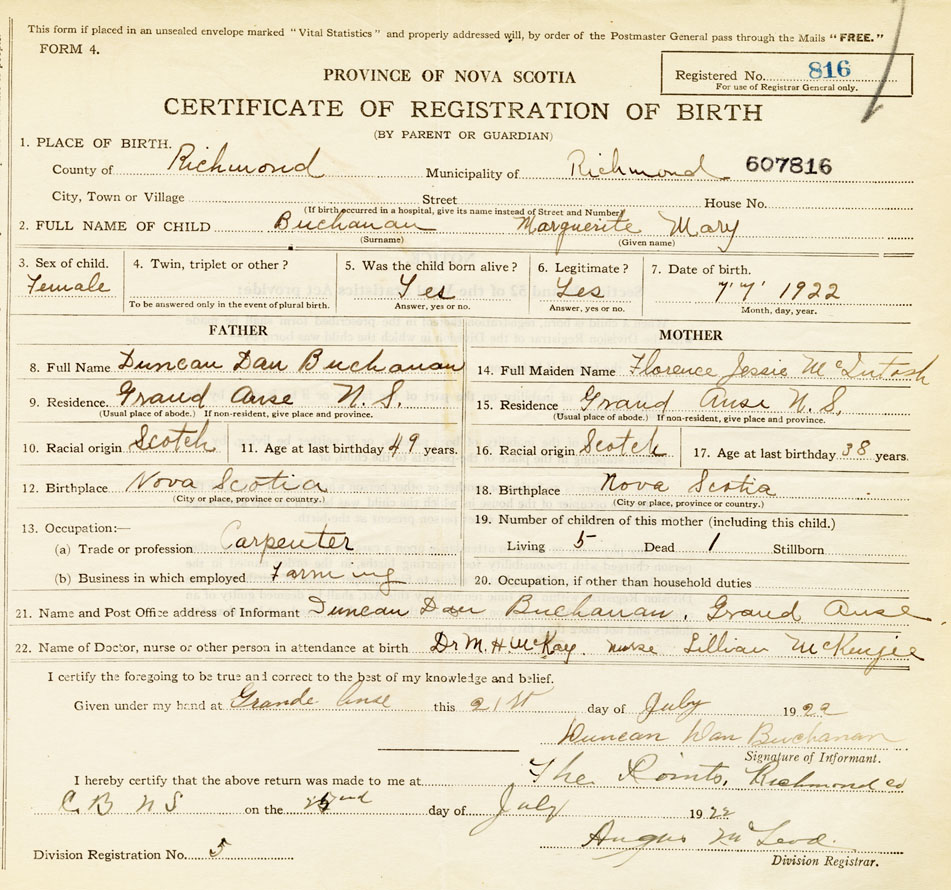 This form if placed in an unsealed envelope marked "Vital Statistics" and properly addressed will, by order of the Postmaster General pass through the Mails "FREE."
FORM 4.
Registered No. 816
For use of Registrar General only.
PROVINCE OF NOVA SCOTIA
CERTIFICATE OF REGISTRATION OF BIRTH
(BY PARENT OR GUARDIAN)
1. PLACE OF BIRTH.
County of Richmond Municipality of Richmond 607816
City, Town or Village Street House No.
(If birth occurred in a hospital, give its name instead of Street and Number)
2. FULL NAME OF CHILD Buchanan Marguerite Mary
(Surname) (Given name)
3. Sex of child. 4. Twin, triplet or other? 5. Was the child born alive? 6. Legitimate? 7. Date of birth.
Female Yes Yes 7 7 1922
To be answered only in the event of plural birth. Answer, yes or no. Answer, yes or no. Month, day, year.
FATHER MOTHER
8. Full Name Duncan Dan Buchanan 14. Full Maiden Name Florence Jessie McIntosh
9. Residence Grand Anse N.S. 15. Residence Grand Anse N.S.
(Usual place of abode.) If non-resident, give place and province. (Usual place of abode.) If non-resident, give place and province.
10. Racial origin Scotch 11. Age at last birthday 49 years. 16. Racial origin Scotch 17. Age at last birthday 38 years.
12. Birthplace Nova Scotia 18. Birthplace Nova Scotia
(City or place, province or country.) (City or place, province or country.)
13. Occupation:— 19. Number of children of this mother (including this child.)
(a) Trade or profession Carpenter Living 5 Dead 1 Stillborn
(b) Business in which employed Farming 20. Occupation, if other than household duties
21. Name and Post Office address of Informant Duncan Dan Buchanan, Grand Anse.
22. Name of Doctor, nurse or other person in attendance at birth Dr M. H McKay nurse Lillian McKenzie
I certify the foregoing to be true and correct to the best of my knowledge and belief.
Given under my hand at Grande Anse this 21st day of July 1922
Duncan Dan Buchanan
Signature of Informant.
I hereby certify that the above return was made to me at The Points, Richmond co
C B N S on the 22nd day of July 1922
Angus McLeod.
Division Registration No. 5 Division Registrar.